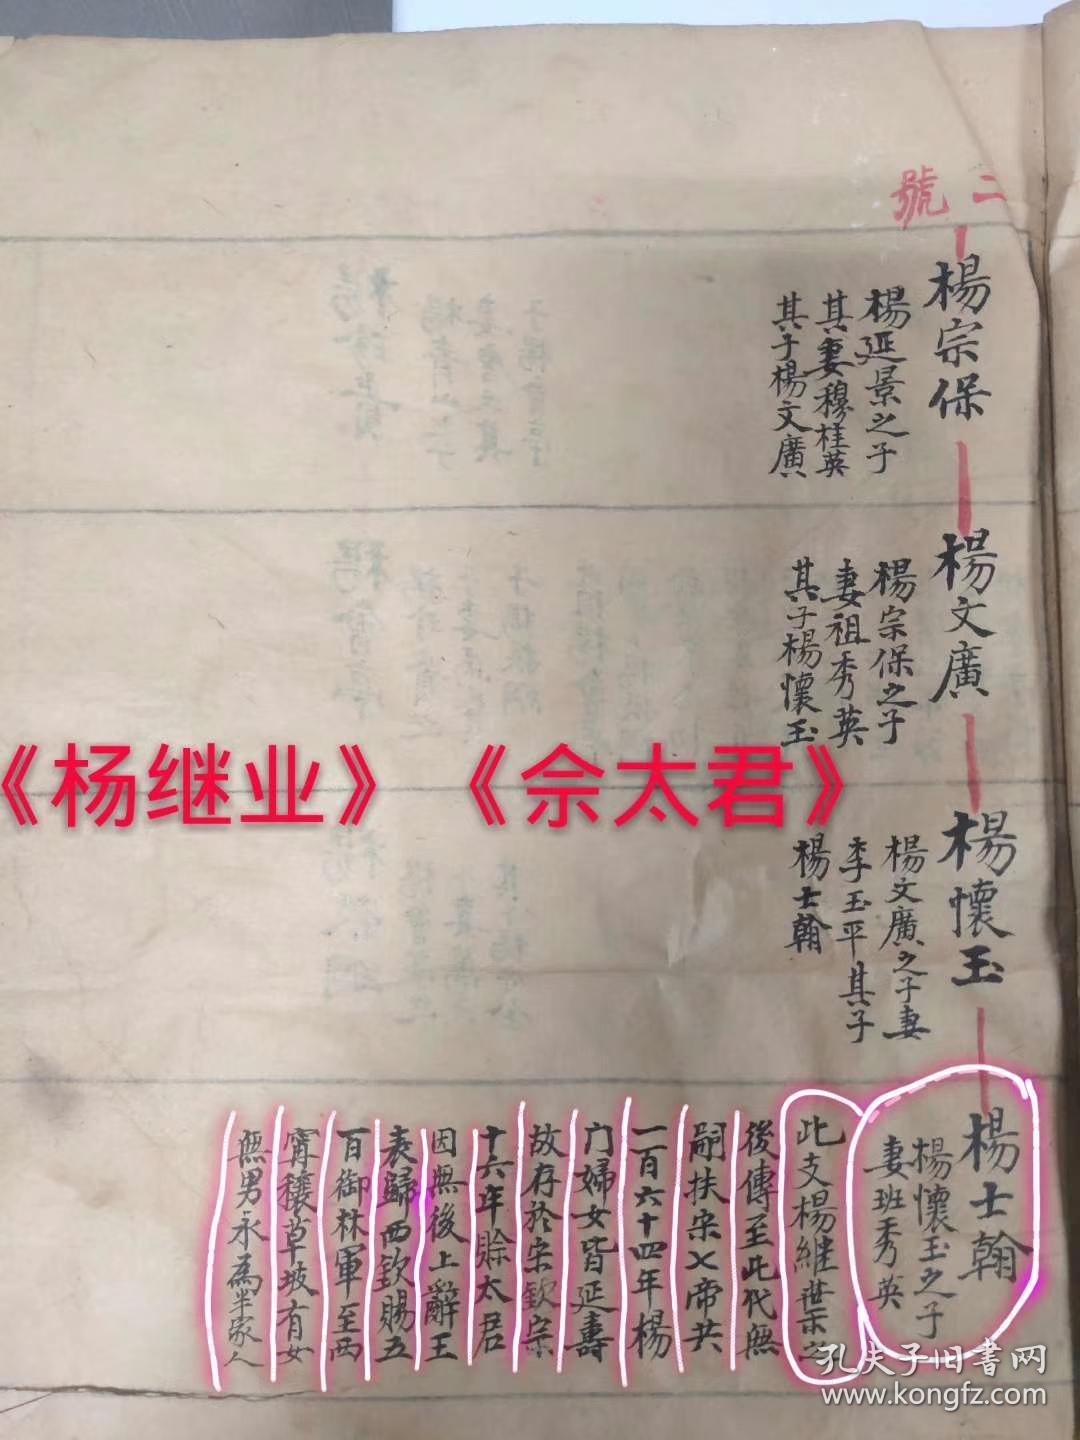 二號
楊宗保
楊延景之子
其妻穆桂英
其子楊文廣
楊文廣
楊宗保之子
妻祖秀英
其子楊懷玉
《杨继业》《佘太君》
楊懷玉
楊文廣之子妻
李玉平其子
楊士翰
楊士翰
楊懷玉之子
妻班秀英
此支楊継業之
後傳至此代無
嗣扶宋七帝共
一百六十四年楊
门婦女皆延壽
故存於宋欽宗
十六年賒太君
因無後上辭王
表歸西欽賜五
百御林軍至西
甯穰草坡有女
無男永為半家人
孔夫子旧书网
www.kongfz.com